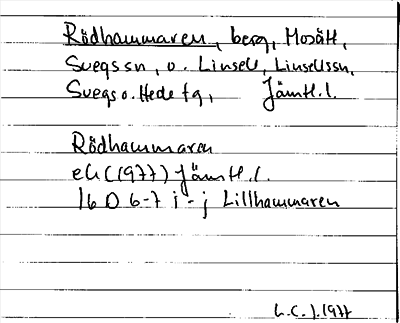 Rödhammaren, berg, Mosätt,
Svegs sn, o. Linsell, Linsells sn,
Svegs o. Hede tg, Jämtl. l.
Rödhammaren
ek (1977) Jämtl. l.
16 D 6-7 i - j Lillhammaren
L.C.J. 1977